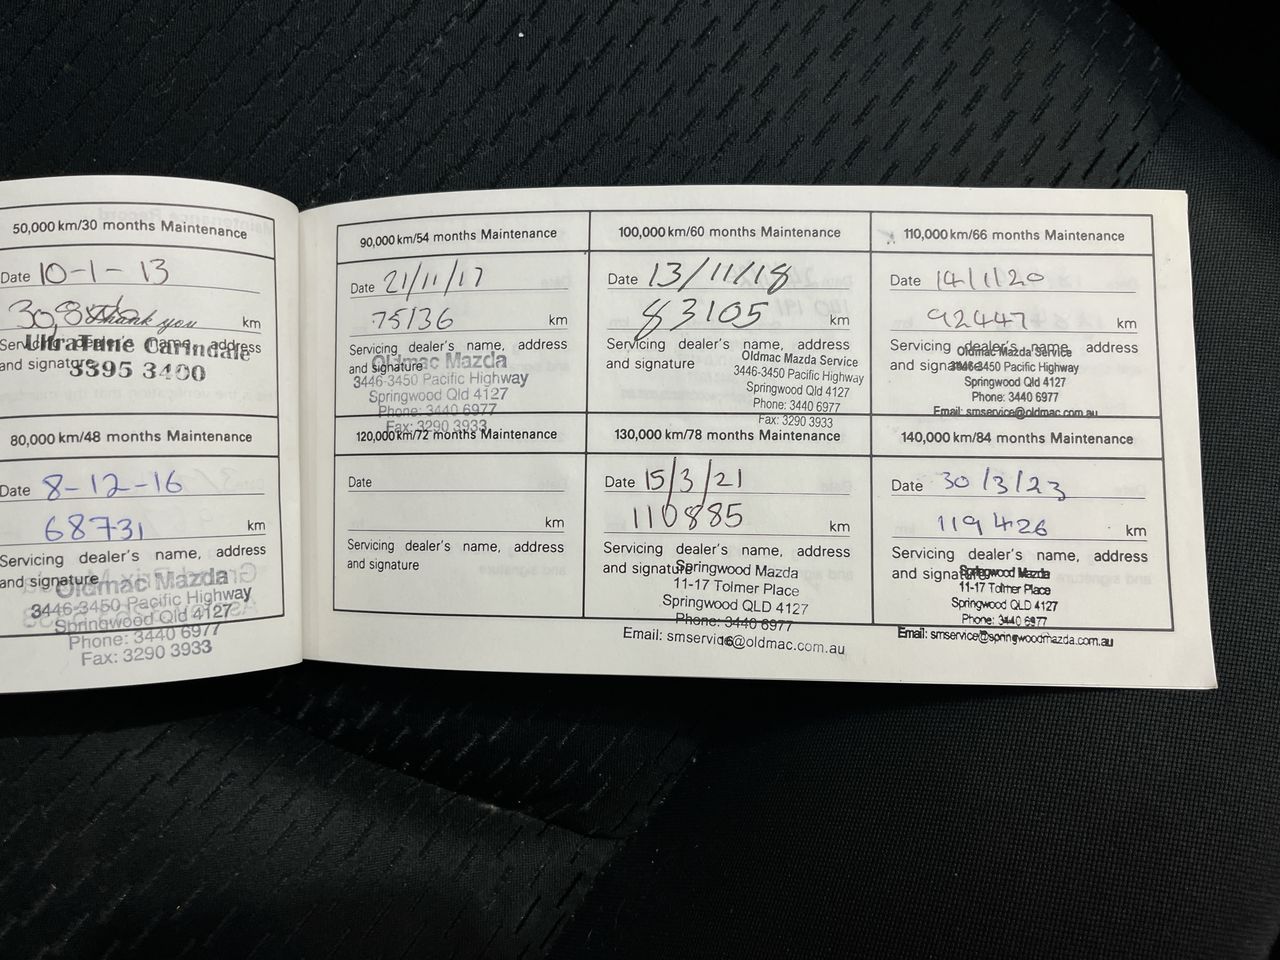 50,000 km/30 months Maintenance
Date 10-1-13
km
Thank you
Servicing dealer's name, address
and signature
UltraTune Carindale
3395 3400
80,000 km/48 months Maintenance
Date 8-12-16
68731 km
Servicing dealer's name, address
and signature
Oldmac Mazda
3446-3450 Pacific Highway
Springwood Qld 4127
Phone: 3440 6977
Fax: 3290 3933
90,000 km/54 months Maintenance
Date 21/11/17
75136 km
Servicing dealer's name, address
and signature
Oldmac Mazda
3446-3450 Pacific Highway
Springwood Qld 4127
Phone: 3440 6977
Fax: 3290 3933
100,000 km/60 months Maintenance
Date 13/11/18
83105 km
Servicing dealer's name, address
and signature
Oldmac Mazda Service
3446-3450 Pacific Highway
Springwood Qld 4127
Phone: 3440 6977
Fax: 3290 3933
110,000 km/66 months Maintenance
Date 14/1/20
92447 km
Servicing dealer's name, address
and signature
Oldmac Mazda Service
3446-3450 Pacific Highway
Springwood Qld 4127
Phone: 3440 6977
Email: smservice@oldmac.com.au
120,000 km/72 months Maintenance
Date
km
Servicing dealer's name, address
and signature
130,000 km/78 months Maintenance
Date 15/3/21
110885 km
Servicing dealer's name, address
and signature
Springwood Mazda
11-17 Tolmer Place
Springwood QLD 4127
Phone: 3440 6977
Email: smservice@oldmac.com.au
16
140,000 km/84 months Maintenance
Date 30/3/23
119426 km
Servicing dealer's name, address
and signature
Springwood Mazda
11-17 Tolmer Place
Springwood QLD 4127
Phone: 3440 6977
Email: smservice@springwoodmazda.com.au